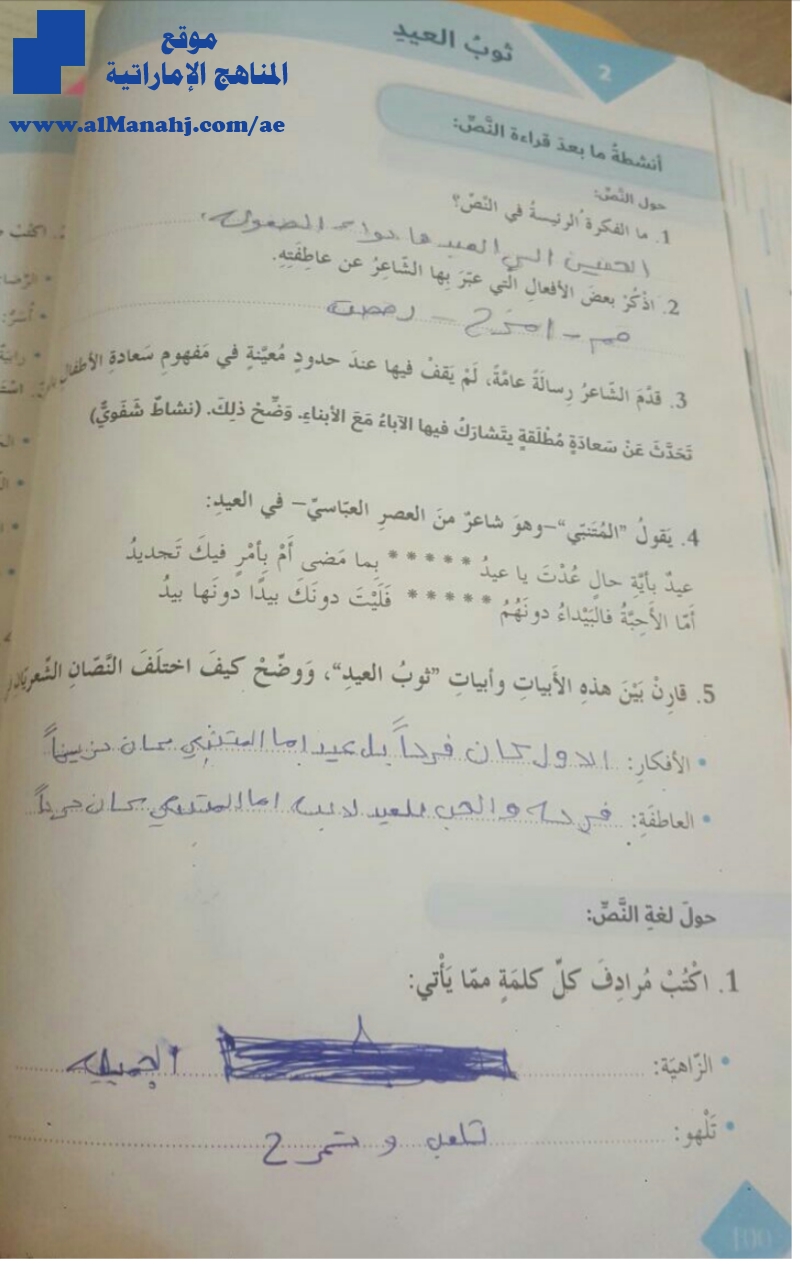 موقع
المناهج الإماراتية
www.alManahj.com/ae
2
ثوبُ العيدِ
أنشطةُ ما بعدَ قراءةِ النَّصِّ:
حولَ النَّصِّ:
1. ما الفكرةُ الرئيسةُ في النّصّ؟
الحنين الى العيد
2. اذْكُرْ بعضَ الأفعالِ الّتي عبّرَ بِها الشّاعِرُ عن عاطِفَتِهِ.
امرح
3. قدَّمَ الشّاعرُ رِسالَةً عامَّةً، لَمْ يَقفْ فيها عندَ حدودٍ مُعيَّنةٍ في مَفهومِ سَعادةِ الأطفالِ
تَحَدَّثَ عَنْ سَعادَةٍ مُطْلَقةٍ يتَشارَكُ فيها الآباءُ مَعَ الأبناءِ. وَضِّحْ ذلِكَ. (نشاطٌ شَفَويٌّ)
4. يَقولُ "المُتَنبّي" –وهوَ شاعرٌ منَ العصرِ العبّاسيِّ– في العيدِ:
عيدٌ بأيَّةِ حالٍ عُدْتَ يا عيدُ ***** بِما مَضى أَمْ بِأمْرٍ فيكَ تَجديدُ
أمّا الأَحِبَّةُ فالبَيْداءُ دونَهُمُ ***** فَلَيْتَ دونَكَ بيدًا دونَها بيدُ
5. قارِنْ بَيْنَ هذهِ الأَبياتِ وأبياتِ "ثوبُ العيدِ"، وَوضِّحْ كيفَ اختلَفَ النَّصّانِ الشّعريّانِ
• الأفكارِ: الاول كان فرحاً بل عيد اما المتنبي كان حزيناً
• العاطفَةِ: فرحه والحب للعيد اما المتنبي كان
حولَ لغةِ النَّصِّ:
1. اكْتُبْ مُرادِفَ كلِّ كلمَةٍ ممّا يَأْتي:
• الزّاهيَة: الجميله
• تَلْهو: تلعب و تمرح
100